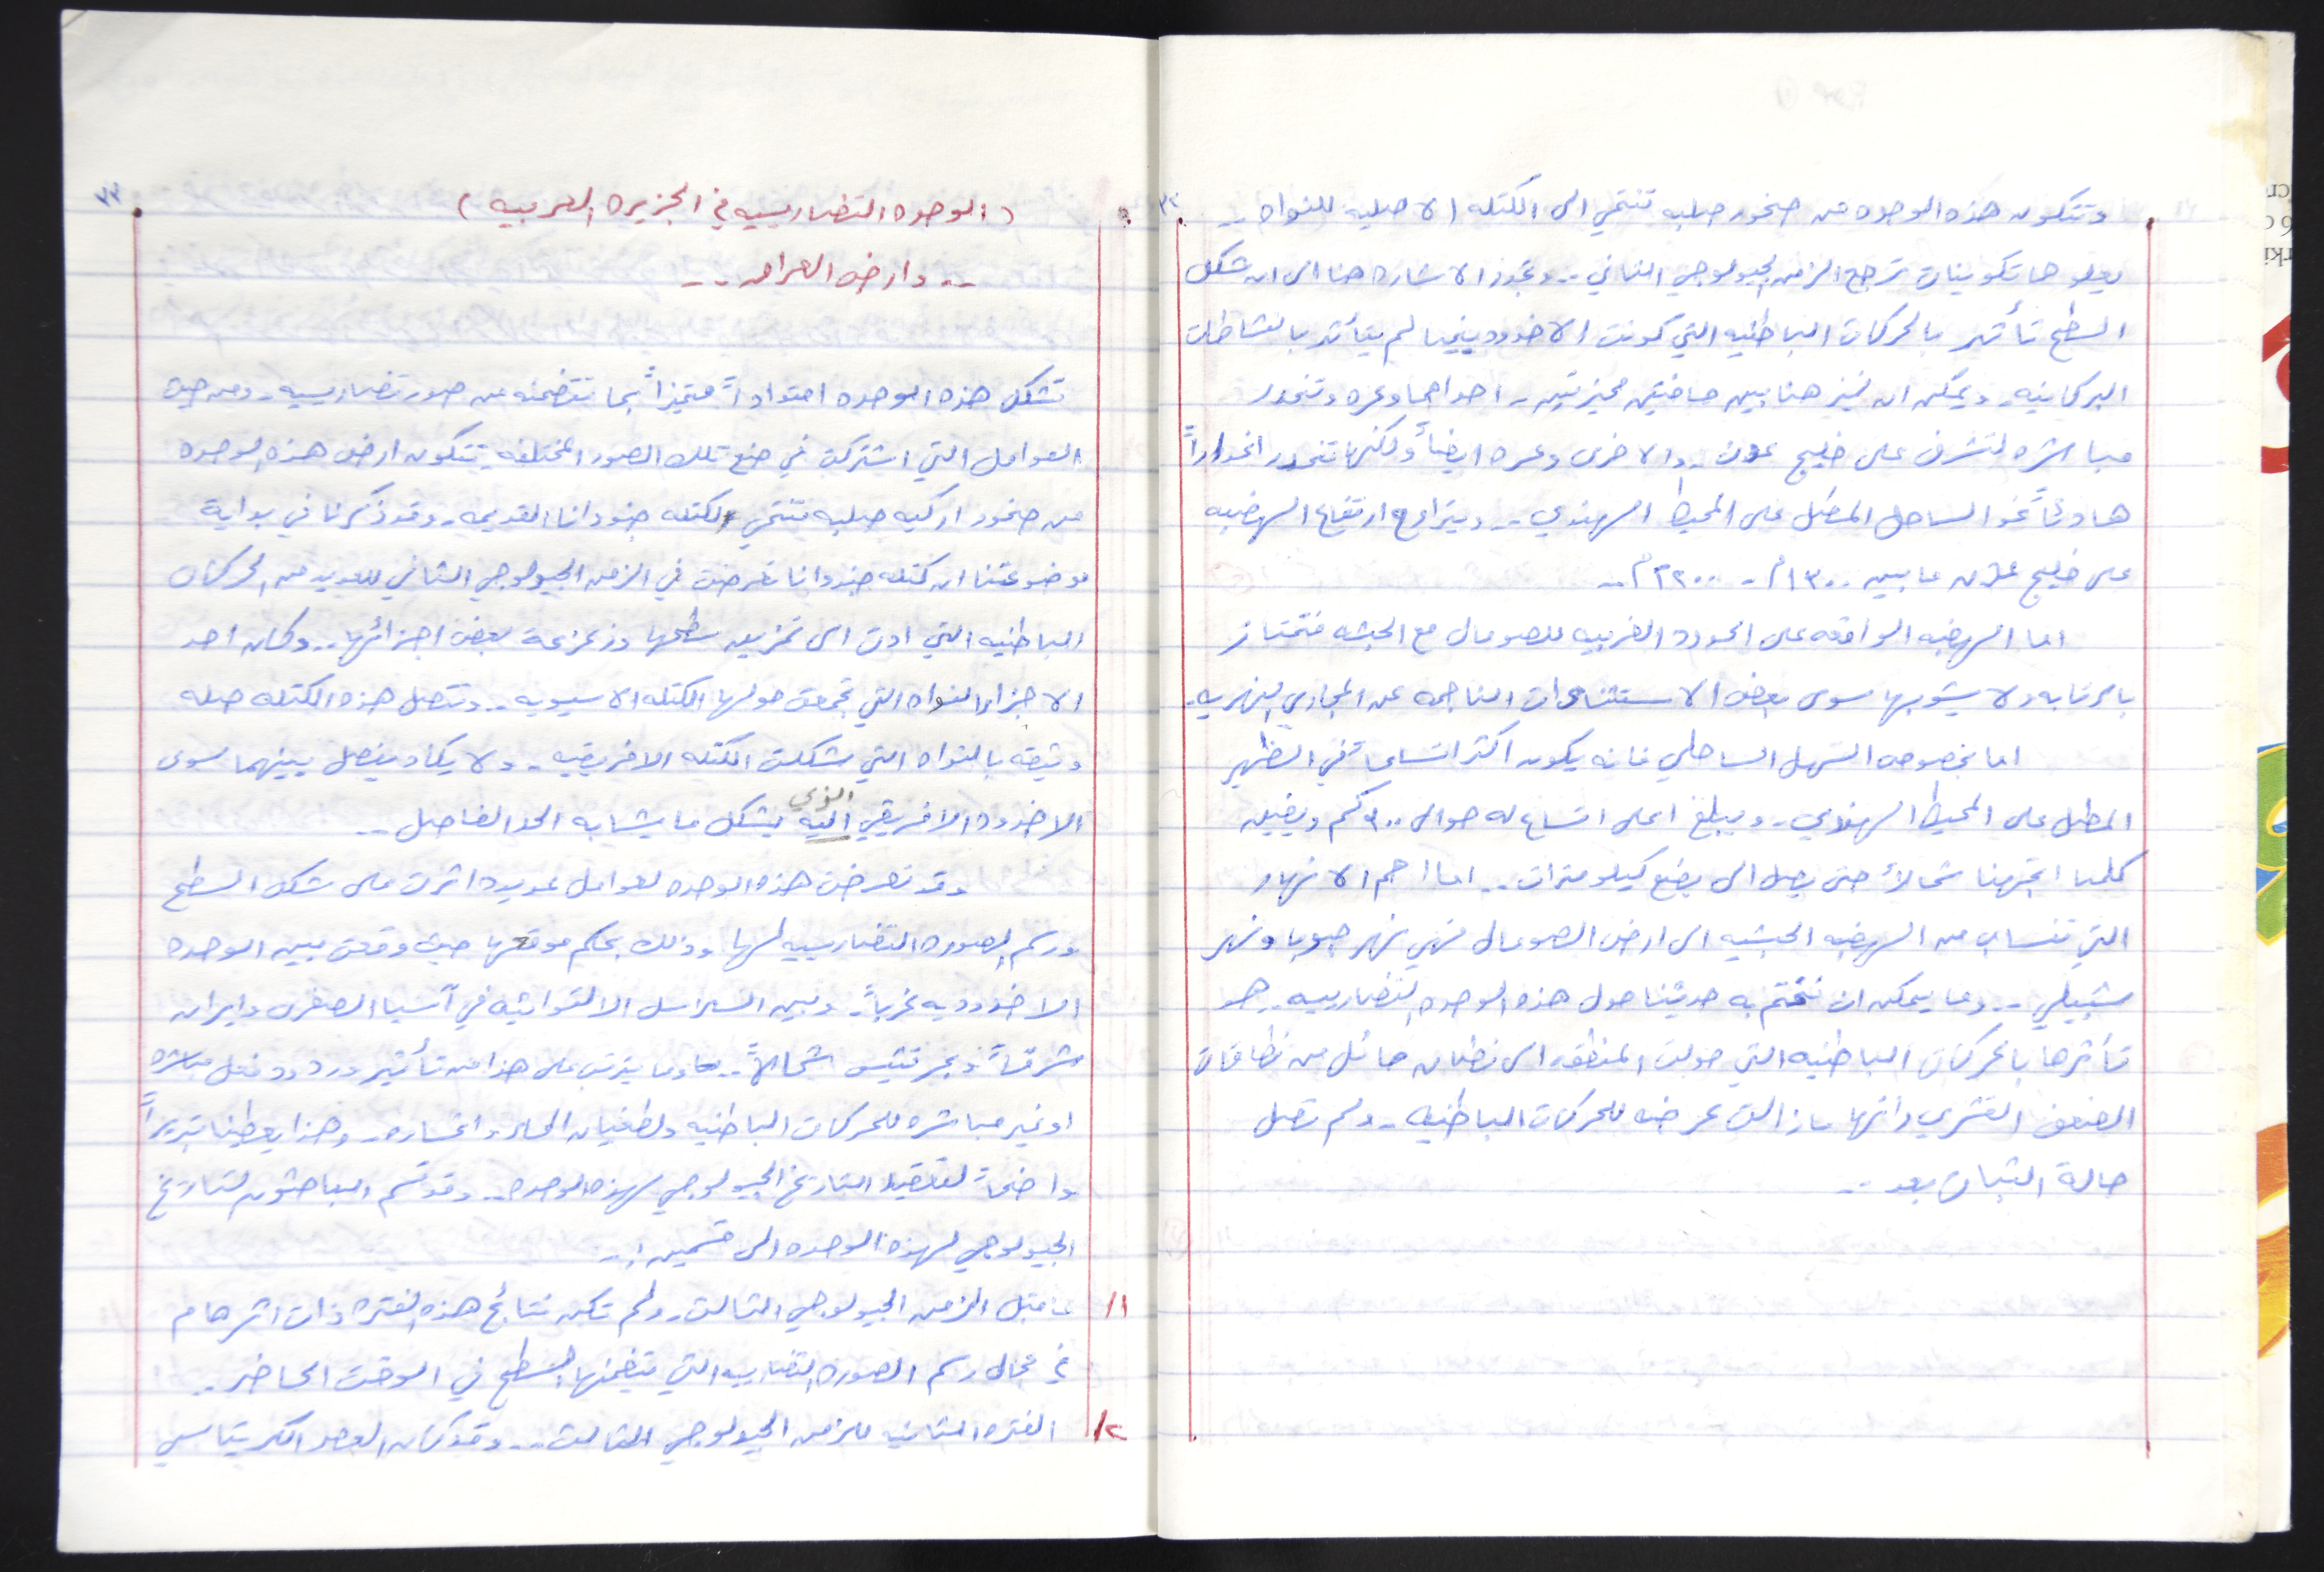 ٣٢
وتتكون هذه الوحده من صخور صلبه تنتمي الى الكتله الاصليه للنواه ..
يعلوها تكوينات ترجع الزمن الجيولوجي الثاني .. وتجدر الاشاره هنا الى ان شكل
السطح تأثر بالحركات الباطنيه التي كونت الاخدود بينما لم يتأثر بالنشاطات
البركانيه .. ويمكن ان نميز هنا بين حافتين مميزتين .. احداهما وعره وتنحدر
مباشره لتشرف على خليج عدن .. والاخرى وعره ايضاً ولكنها تنحدر انحداراً
هادئاً نحو الساحل المطل على المحيط الهندي .. ويتراوح ارتفاع الهضبه
على خليج عدن ما بين ١٣٠٠م - ٢٢٠٠م ..
اما الهضبه الواقعه على الحدود الغربيه للصومال مع الحبشه فتمتاز
بالرتابه ولا يشوبها سوى بعض الاستثناءات الناجمه عن المجاري النهريه ..
اما بخصوص السهل الساحلي فانه يكون اكثر اتساعاً في الظهير
المطل على المحيط الهندي .. ويبلغ اعلى اتساع له حوالى ٣٠٠كم ويضيق
كلما اتجهنا شمالاً حتى يصل الى بضع كيلومترات .. اما اهم الانهار
التي تنساب من الهضبه الحبشيه الى ارض الصومال فهي نهر جوبا ونهر
شبيلي .. وما يمكن ان نختتم به حديثنا حول هذه الوحده التضاريسيه .. هو
تأثرها بالحركات الباطنيه التي حولت المنطقه الى نطاق هائل من نطاقات
الضعف القشري وانها مازالت عرضه للحركات الباطنيه .. ولم تصل
حالة الثبات بعد ..
٣٣
( الوحده التضاريسيه في الجزيره العربيه )
.. وارض العراق ..
تشكل هذه الوحده امتداداً متميزاً بما تتضمنه من صور تضاريسيه .. ومن حيث
العوامل التي اشتركت في صنع تلك الصور المختلفه .. تتكون ارض هذه الوحده
من صخور اركيه صلبه تنتمي لكتله جندوانا القديمه .. وقد ذكرنا في بداية
موضوعنا ان كتله جندوانا تعرضت في الزمن الجيولوجي الثاني للعديد من الحركات
الباطنيه التي ادت الى تمزيق سطحها وزعزعة بعض اجزائها .. وكان احد
الاجزاء النواه التي تجمعت حولها الكتله الاسيويه .. وتتصل هذه الكتله صله
وثيقه بالنواه التي شكلت الكتله الافريقيه .. ولا يكاد يفصل بينهما سوى
الاخدود الافريقي الذي يشكل ما يشابه الحد الفاصل ..
وقد تعرضت هذه الوحده لعوامل عديده اثرت على شكل السطح
ورسم الصوره التضاريسيه لها وذلك بحكم موقعها حيث وقعت بين الوحده
الاخدوديه غرباً .. وبين السلاسل الالتوائيه في آسيا الصغرى وايران
شرقاً وبحر تثيس شمالاً .. وما يترتب على هذا من تأثير وردود فعل مباشره
او غير مباشره للحركات الباطنيه ولطغيان الماء وانحساره .. وهذا يعطينا تبريراً
واضحاً لتعقيد التاريخ الجيولوجي لهذه الوحده .. وقد قسم الباحثون التاريخ
الجيولوجي لهذه الوحده الى قسمين :-
١/ ما قبل الزمن الجيولوجي الثالث .. ولم تكن نتائج هذه الفتره ذات اثر هام
في مجال رسم الصوره التضاريسيه التي يتضمنها السطح في الوقت الحاضر ..
٢/ الفتره الثانيه للزمن الجيولوجي الثالث .. وقد كان العصر الكريتاسي